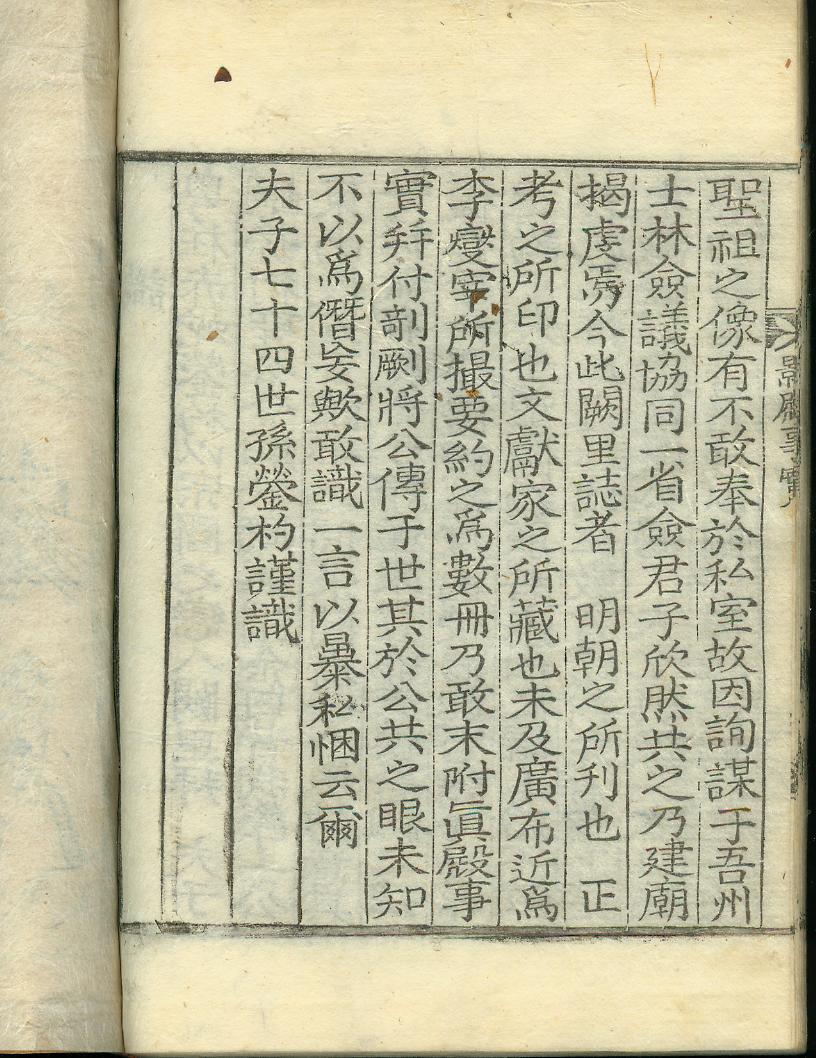 影殿事實
聖祖之像有不敢奉於私室故因詢謀于吾州
士林僉議協同一省僉君子欣然共之乃建廟
揭虔焉今此闕里誌者 明朝之所刋也 正
考之所印也文獻家之所藏也未及廣布近爲
李燮宰所撮要約之爲數冊乃敢末附眞殿事
實幷付剞劂將公傳于世其於公共之眼未知
不以爲僭妄歟敢識一言以暴私悃云爾
夫子七十四世孫瀅杓謹識